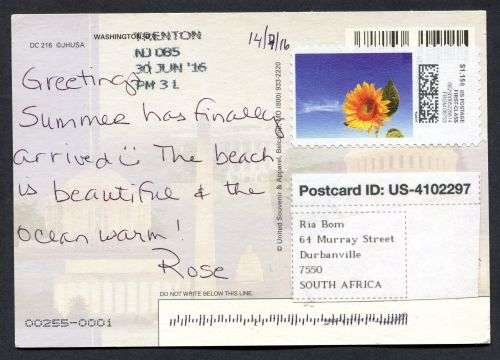 DC 216 ©JHUSA
WASHINGTON
TRENTON
NJ 085
30 JUN '16
PM 3 L
Greetings
Summer has finally
arrived☺ The beach
is beautiful & the
ocean warm!
Rose
DO NOT WRITE BELOW THIS LINE.
00255-0001
© United Souvenir & Apparel,
(800) 933-2220
US POSTAGE
FIRST-CLASS
Postcard ID: US-4102297
Ria Bom
64 Murray Street
Durbanville
7550
SOUTH AFRICA